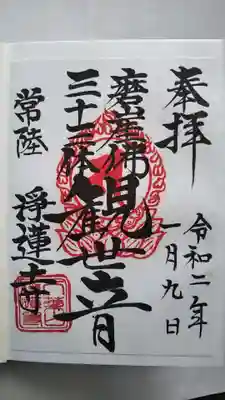 奉拝
令和二年
一月九日
磨崖佛
三十三体
観世音
常陸
浄蓮寺